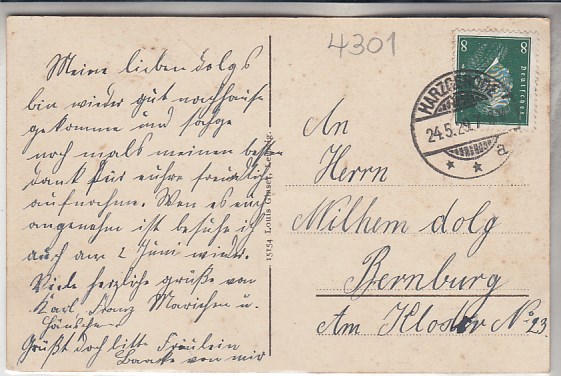 4301
Meine lieben dolgs
bin wieder gut nachhause
gekomme und sage
noch mals meinen besten
dank für eure freundliche
aufnahme. Wen es euch
angenehm ist besuhe ich
auch am 2 Juni wieder.
Viele herzliche grüße von
Karl Franz Mariechen u.
Hänschen
Grüßt doch bitte Fräulein
Baacke von mir
15154 Louis Glaser, Leipzig.
8 8
Deutsches
HARZGERODE
24.5.29.7
a
An
Herrn
Wilhem dolg
Bernburg
Am Kloster No 23.